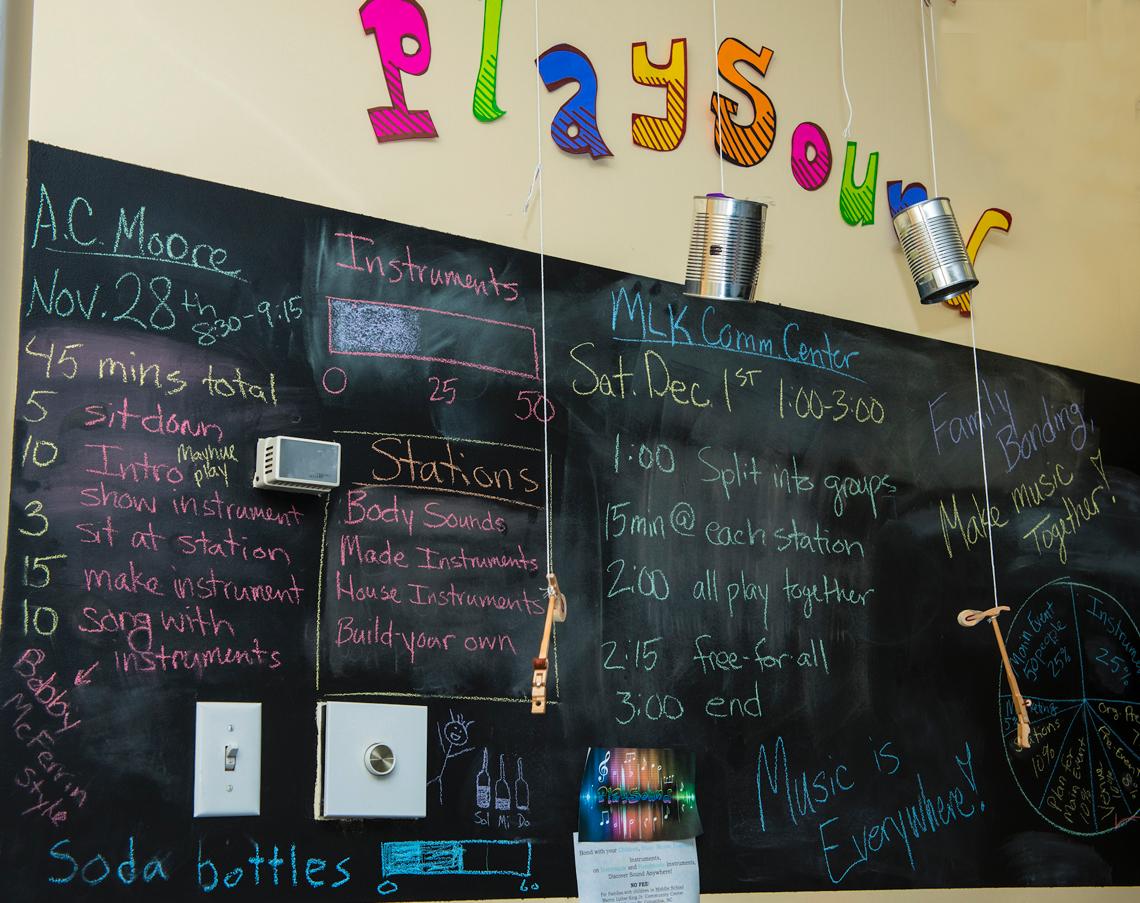 PlaySound
A.C. Moore
Nov. 28th
8:30-9:15
45 mins total
5 sit down
10 Intro mayhue play
show instrument
3 sit at station
15 make instrument
10 song with
instruments
Bobby
McFerrin
Style
Instruments
0 25 50
Stations
Body Sounds
Made Instruments
House Instruments
Build-your own
Sol Mi Do
Soda bottles
0 60
MLK Comm. Center
Sat. Dec. 1ST 1:00-3:00
1:00 Split into groups
15min @ each station
2:00 all play together
2:15 free-for-all
3:00 end
Music is
Everywhere!
Family
Bonding,
Make music
Together!
Main Event
50 people
25%
25%
10%
Plan for
Main Event
10%
PlaySound
Bond with your Children,
Instruments,
on and
Discover Sound Anywhere!
NO FEE!
For Families with children in Middle School